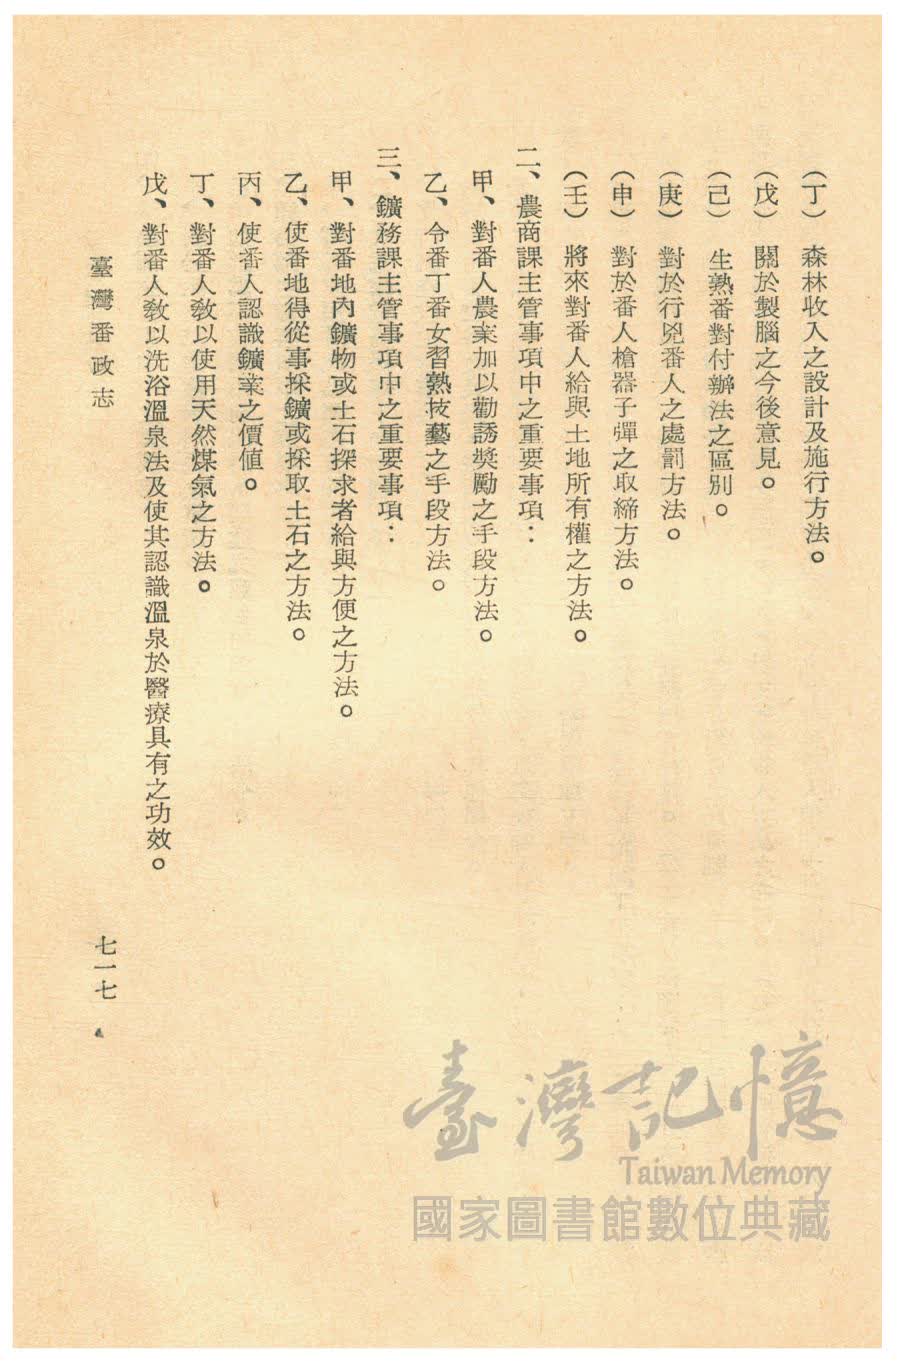 (丁) 森林收入之設計及施行方法。
(戊) 關於製腦之今後意見。
(己) 生熟番對付辦法之區別。
(庚) 對於行兇番人之處罰方法。
(申) 對於番人槍器子彈之取締方法。
(壬) 將來對番人給與土地所有權之方法。
二、農商課主管事項中之重要事項：
甲、對番人農業加以勸誘獎勵之手段方法。
乙、令番丁番女習熟技藝之手段方法。
三、鑛務課主管事項中之重要事項：
甲、對番地內鑛物或土石探求者給與方便之方法。
乙、使番地得從事採鑛或採取土石之方法。
丙、使番人認識鑛業之價值。
丁、對番人教以使用天然煤氣之方法。
戊、對番人教以洗浴溫泉法及使其認識溫泉於醫療具有之功效。
臺灣番政志
七一七
臺灣記憶
Taiwan Memory
國家圖書館數位典藏